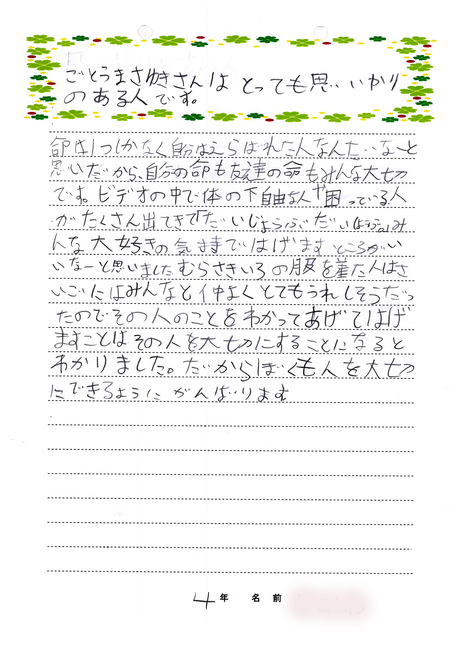 ごとうまさゆきさんは とっても思いやり
のある人です。
命は1つしかなく自分はえらばれた人なんだなーと
思いだから、自分の命も友達の命もみんな大切
です。ビデオの中で体の下自由な人や困っている人
がたくさん出てきて「だいじょうぶだいじょうぶ」み
んな大好きの気持ではげますところがい
いなーと思いましたむらさきいろの服を着た人はさ
いごにはみんなと仲よくとてもうれしそうだっ
たのでその人のことをわかってあげてはげ
ますことはその人を大切にすることになると
わかりました。だからぼくも人を大切
にできるように がんばります
4年 名前